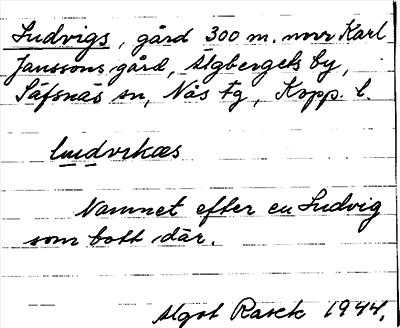 Ludvigs, gård 300 m. nvr Karl
Janssons gård, Älgbergets by,
Säfsnäs sn, Nås tg, Kopp. l.
luudvikas
Namnet efter en Ludvig
som bott där.
Algot Rasck 1944.